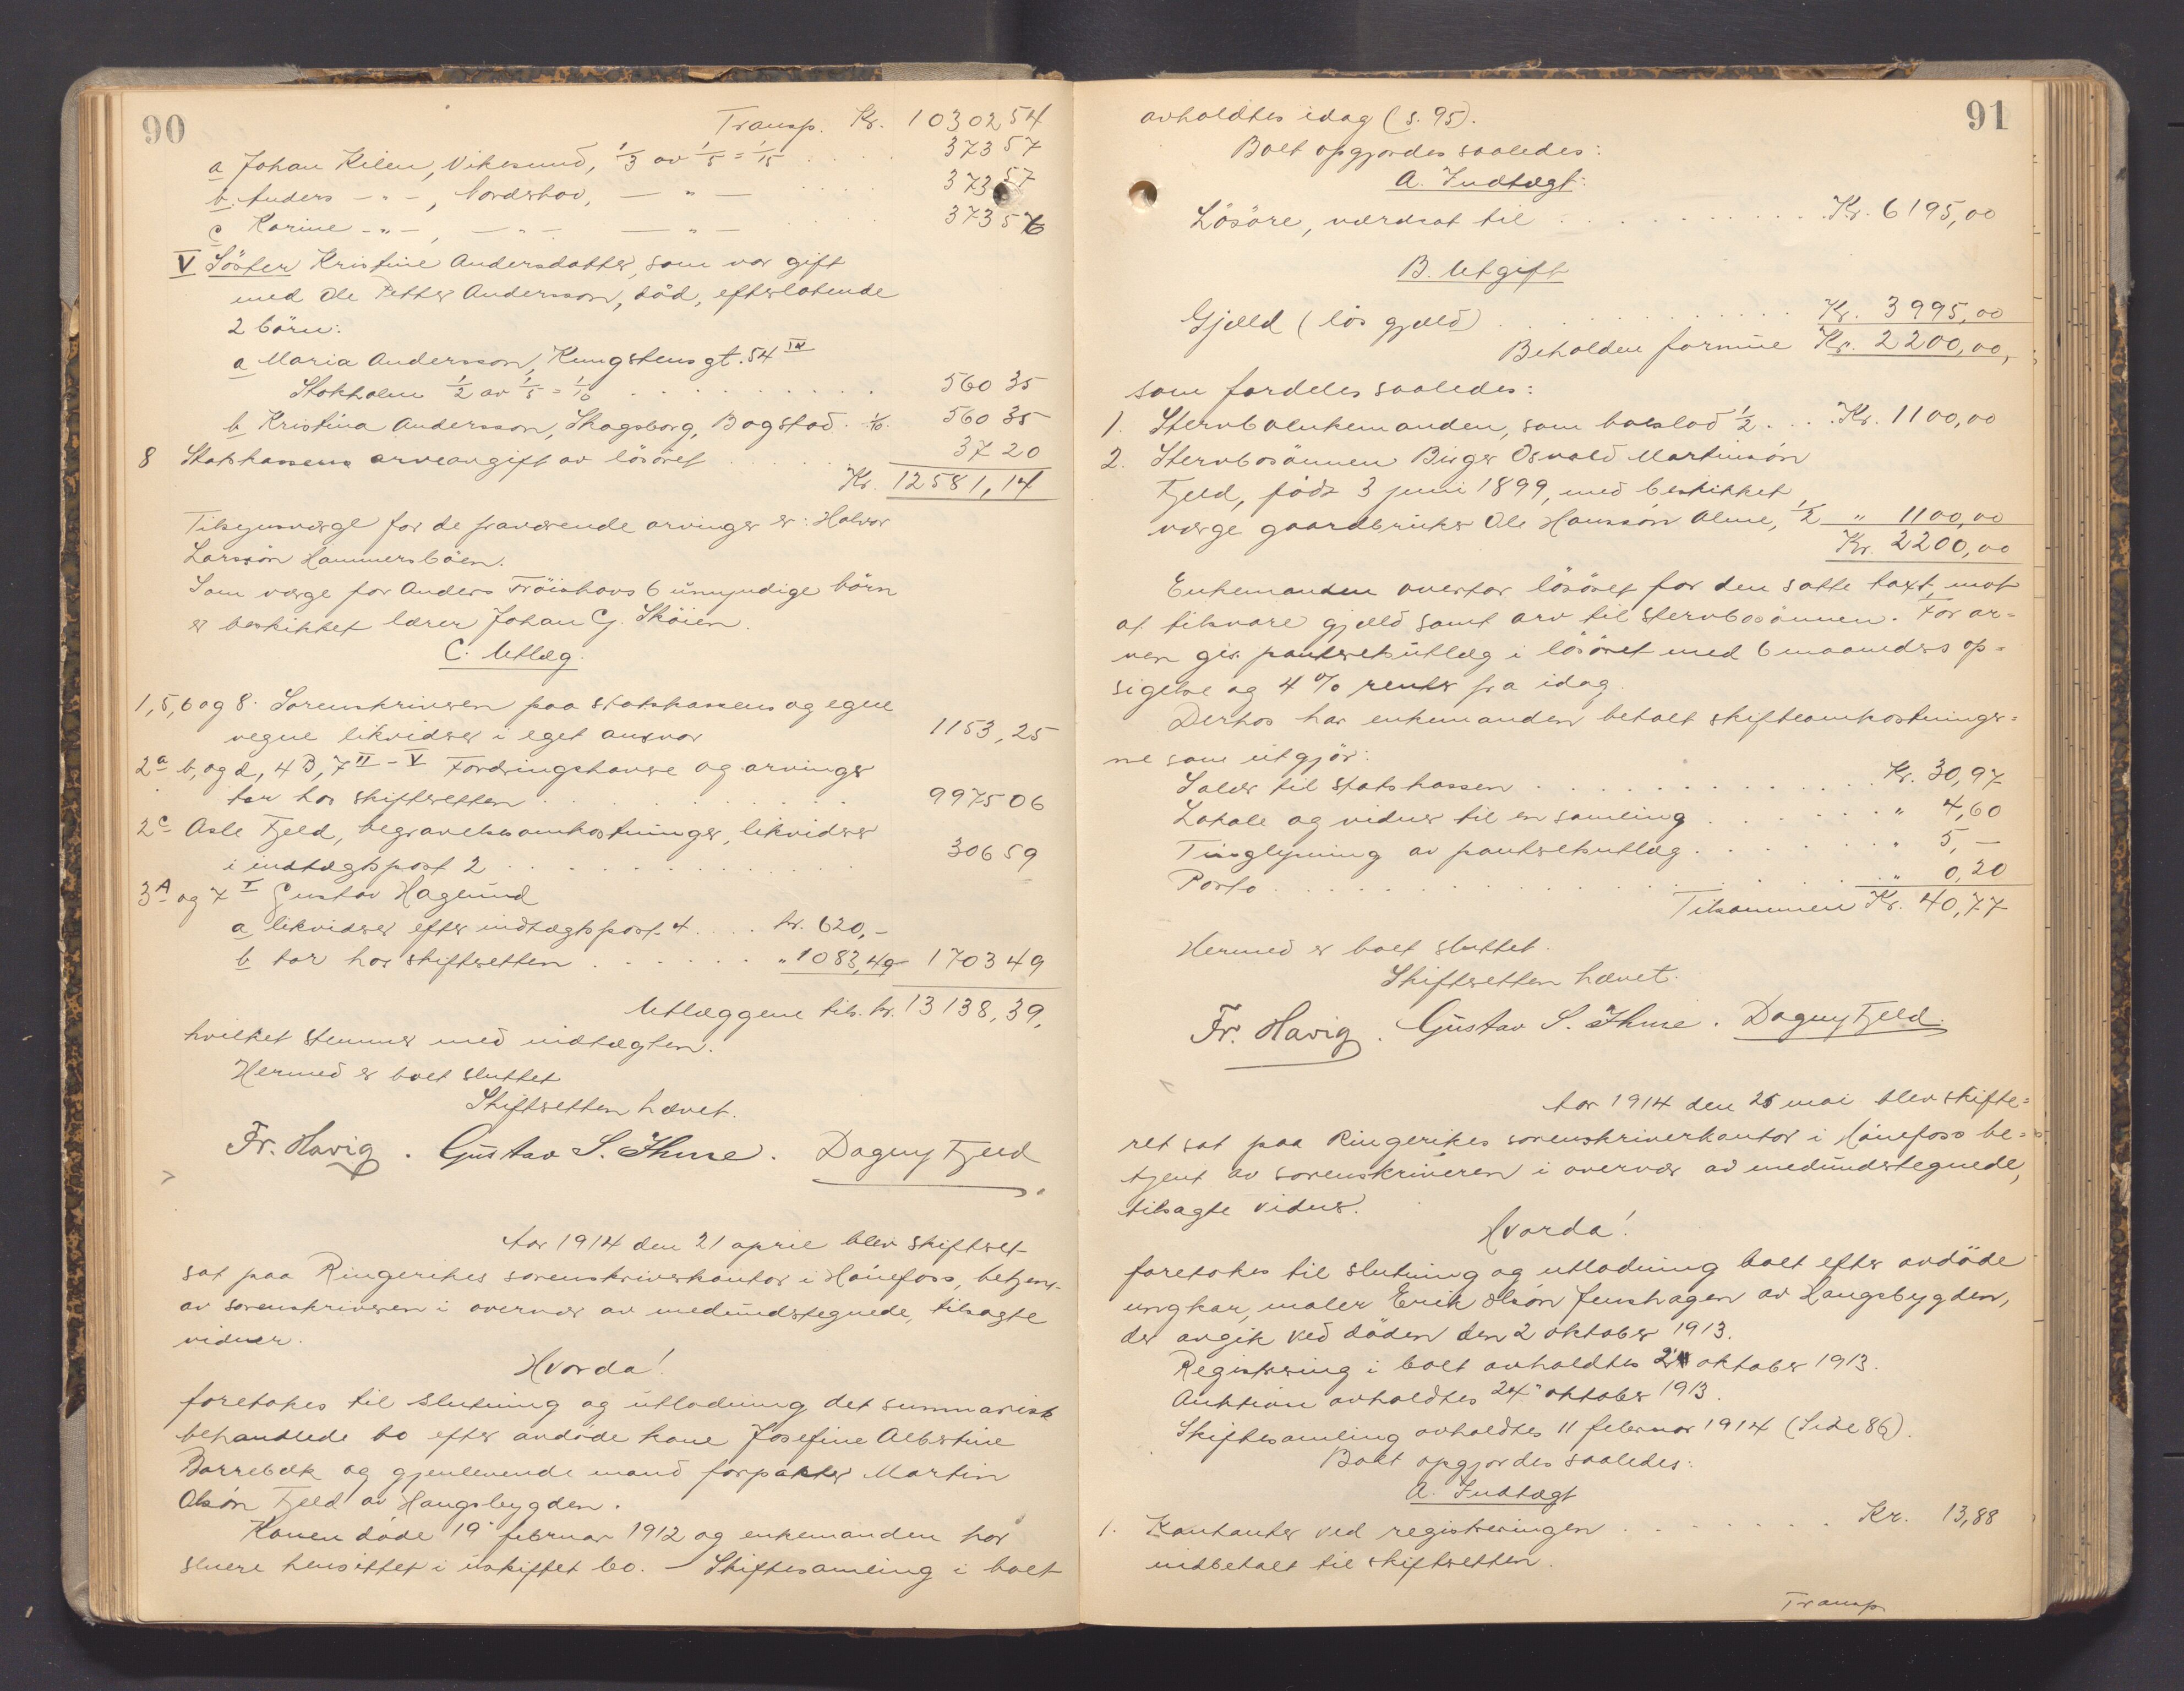 90
Transp. Kr. 10302 54
a Johan Kilen, Vikesund, 1/3 av 1/5 = 1/15 . . . . 373 57
b. Anders - " -, Norderhov, — " — . . . 373 57
c Karine - " -, — " — — " — . . . 373 56
V Söster Kristine Andersdatter, som var gift
med Ole Petter Andersson, död, efterlatende
2 börn:
a Maria Andersson, Kungstensgt. 54 IV
Stokholm 1/2 av 1/5 = 1/10 . . . . . . . . 560 35
b Kristina Andersson, Skogsborg, Bogstad. 1/10. 560 35
8 Statskassens arveavgift av lösöret . . . . 37 20
Kr. 12581,14
Tilsynsværge for de fraværende arvinger er: Halvor
Larssön Hammersböen.
Som værge for Anders Fröishovs 6 umyndige börn
er beskikket lærer Johan G. Sköien.
C. Utlæg.
1, 5, 6 og 8. Sorenskriveren paa statskassens og egne
vegne likvideres i eget ansvar 1153,25
2 a b, og d, 4 B, 7 II - V Fordringshavere og arvinger
tar hos skifteretten . . . . . . . . . 9975 06
2 c Asle Fjeld, begravelsesomkostninger, likvideres
i indtægtspost 2 . . . . . . . . . . 306 59
3 A og 7 I Gustav Haglund
a, likvideres efter indtægtspost 4 . . . . kr. 620,-
b tar hos skifteretten . . . . . . " 1083,49 1703 49
Utlæggene tils. kr. 13138,39,
hvilket stemmer med indtægten.
Hermed er boet sluttet
Skifteretten hævet.
Fr. Havig. Gustav S. Ihme. Dagny Fjeld
Aar 1914 den 21 april blev skifteret
sat paa Ringerikes sorenskriverkontor i Hönefoss, betjent
av sorenskriveren i overvær av medundertegnede, tilsagte
vidner.
Hvorda!
foretokes til slutning og utlodning det summarisk
behandlede bo efter avdöde kone Josefine Albertine
Dorrebæk og gjenlevende mand forpakter Martin
Olsön Fjeld av Haugsbygden.
Konen döde 19' februar 1912 og enkemanden har
senere hensittet i uskiftet bo. – Skiftesamling i boet
91
avholdtes idag (s. 95).
Boet opgjordes saaledes:
A. Indtægt:
Lösöre, værdsat til . . . . . . . . . . . Kr. 6195,00
B. Utgift
Gjæld (lös gjæld) . . . . . . . . . . . . Kr. 3995,00
Beholden formue Kr. 2200,00,
som fordeles saaledes:
1. Stervboenkemanden, som boslod 1/2 . . . . Kr. 1100,00
2. Stervbosönnen Birger Osvald Martinsön
Fjeld, född 3 juni 1899, med beskikket
værge gaardbruker Ole Hanssön Alme, 1/2 " 1100,00
Kr. 2200,00
Enkemanden overtar lösöret for den satte taxt, mot
at tilsvare gjæld samt arv til stervbosönnen. For ar-
ven gis panterets utlæg i lösöret med 6 maaneders op-
sigelse og 4 % renter fra idag.
Derhos har enkemanden betalt skifteomkostninger-
ne som utgjör:
Salær til statskassen . . . . . . . . . . . . Kr. 30,97
Lokale og vidner til en samling . . . . . . . " 4,60
Tinglysning av panteretsutlæg . . . . . . . . " 5,—
Porto . . . . . . . . . . . . . . . . . . " 0,20
Tilsammen Kr. 40,77
Hermed er boet sluttet.
Skifteretten hævet.
Fr. Havig. Gustav S. Ihme. Dagny Fjeld.
Aar 1914 den 25 mai blev skifte-
ret sat paa Ringerikes sorenskriverkontor i Hönefoss be-
tjent av sorenskriveren i overvær av medundertegnede,
tilsagte vidner.
Hvorda!
foretokes til slutning og utlodning boet efter avdöde
ungkar, maler Erik Olsön Jenshagen av Haugsbygden,
der avgik ved döden den 2 oktober 1913.
Registrering i boet avholdtes oktober 1913.
Auktion avholdtes 24" oktober 1913.
Skiftesamling avholdtes 11 februar 1914 (Side 86).
Boet opgjordes saaledes:
A. Indtægt
1. Kontanter ved registreringen . . . . . . . Kr. 13,88
indbetalt til skifteretten.
Transp.